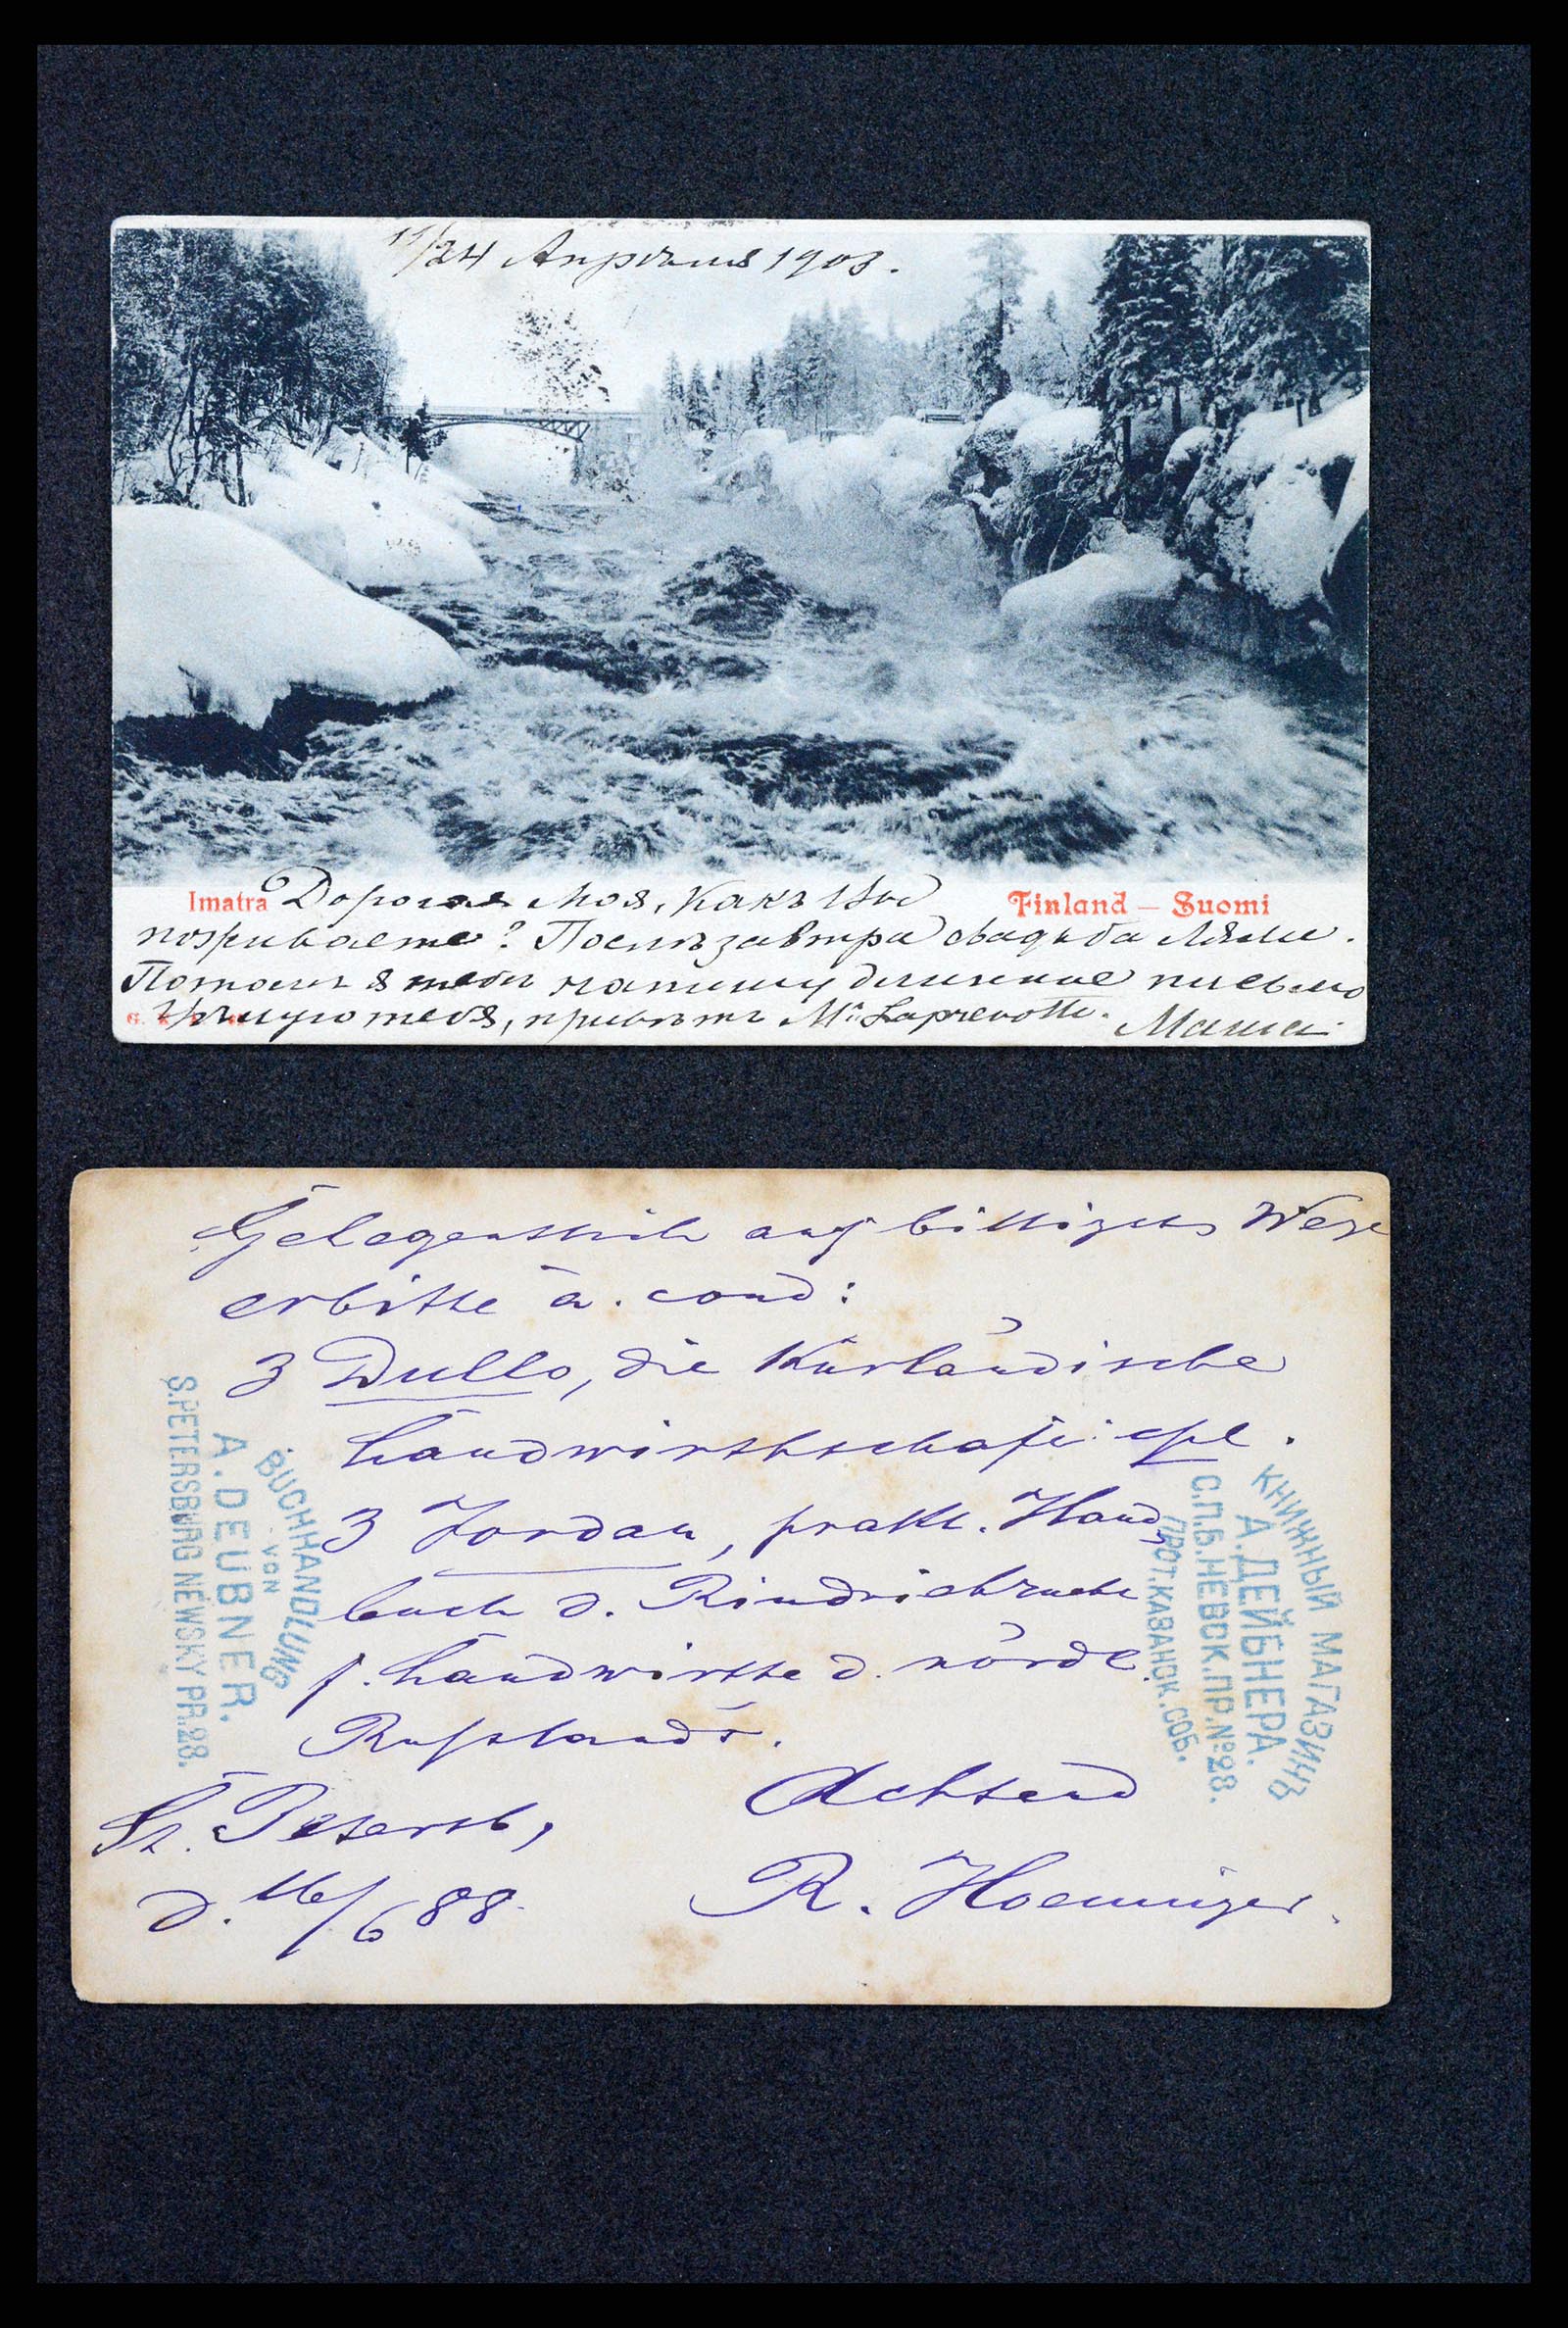 11/24 Апрѣля 1903.
Imatra
Finland — Suomi
Дорогая моя, какъ Вы
поживаете? Послѣзавтра свадьба Ляли.
Потомъ я тебѣ напишу длинное письмо
Цѣлую тебя, привѣтъ Mlle Laprevotte. Маша
Gelegentlich auf billigstem Wege
erbitte à. cond:
3 Dullo, die Kurländische
Landwirthschaft. cpl.
3 Jordan, prakt. Hand-
buch d. Rindviehzucht
f. Landwirthe d. nördl.
Russlands.
Achtend
St. Petersb,
d. 16/6 88.
R. Hoenniger.
BUCHHANDLUNG
VON
A. DEUBNER.
S. PETERSBURG NEWSKY PR. 28.
КНИЖНЫЙ МАГАЗИНЪ
А. ДЕЙБНЕРА.
С.П.Б. НЕВСК. ПР. № 28.
ПРОТ. КАЗАНСК. СОБ.